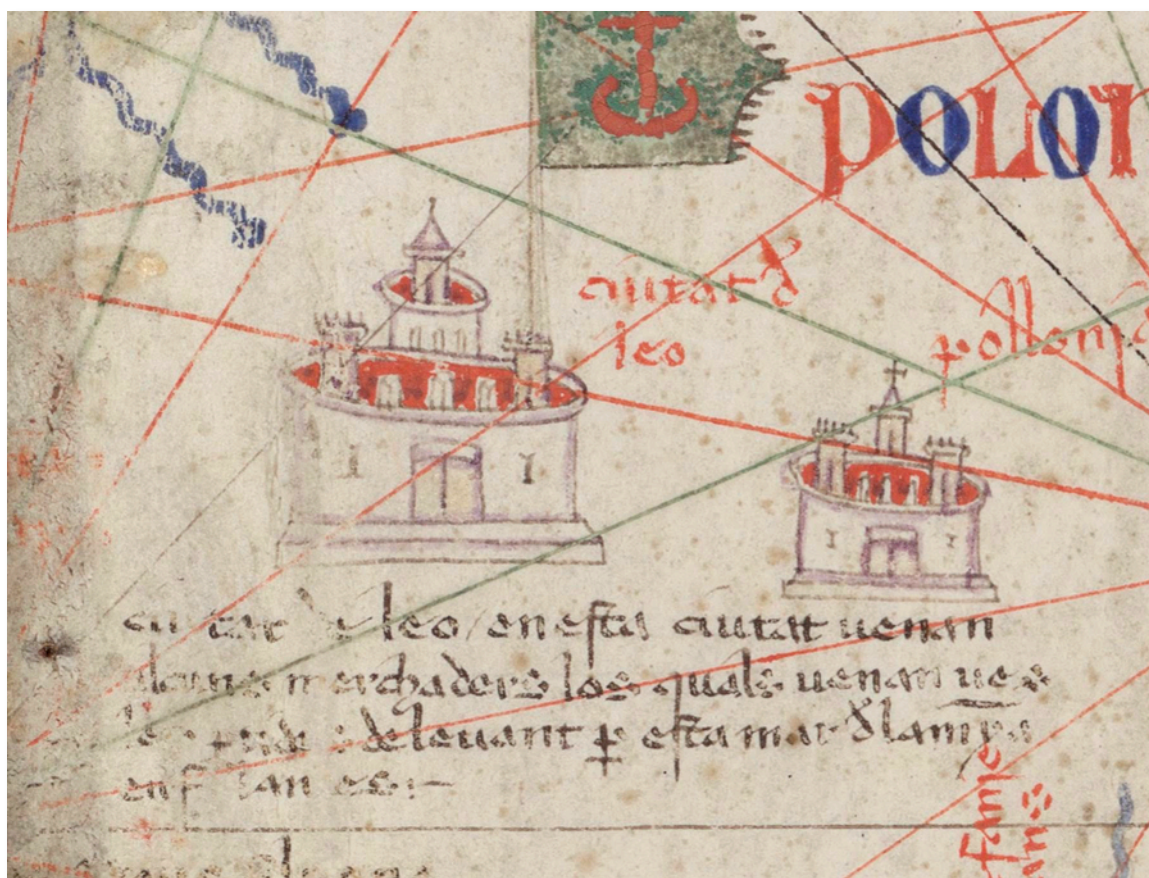 POLON
ciutat d
leo
pollon
ciutat de leo / en esta ciutat uenan
alcuns merchaders los quals uenan ues
les pardes de leuant p esta mar d lamāya
en flandes